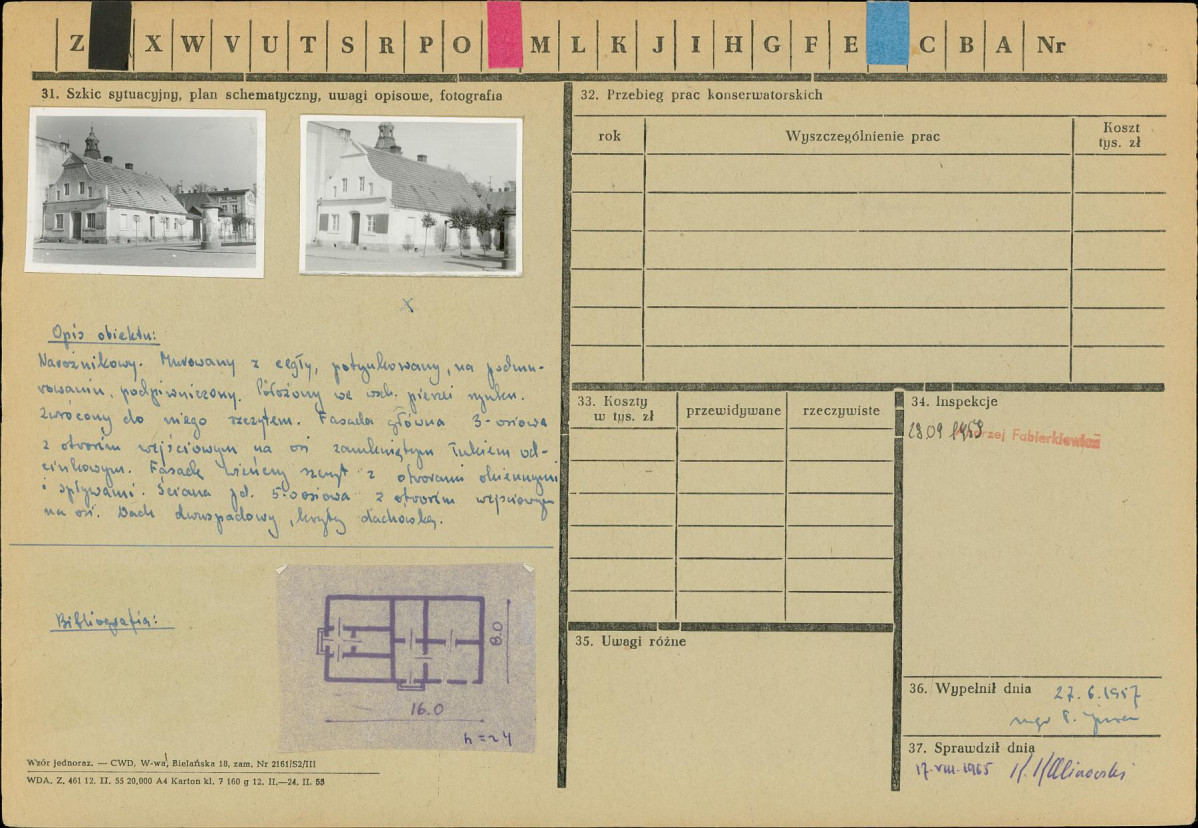 Z X W V U T S R P O M L K J I H G F E C B A Nr
31. Szkic sytuacyjny, plan schematyczny, uwagi opisowe, fotografia
x
Opis obiektu:
Narożnikowy. Murowany z cegły, potynkowany, na podmu-
rowaniu, podpiwniczony. Położony we wsch. pierzei rynku.
Zwrócony do niego szczytem. Fasada główna 3-osiowa
z otworem wejściowym na osi zamkniętym łukiem od-
cinkowym. Fasadę wieńczy szczyt z otworami okiennymi
i spływami. Ściana pd. 5-osiowa z otworem wejściowym
na osi. Dach dwuspadowy, kryty dachówką.
Bibliografia:
8.0
16.0
h = ~4
Wzór jednoraz. — CWD, W-wa, Bielańska 18, zam. Nr 2161/S2/III
WDA. Z. 461 12. II. 55 20,000 A4 Karton kl. 7 160 g 12. II.—24. II. 55
32. Przebieg prac konserwatorskich
rok Wyszczególnienie prac Koszt
tys. zł
33. Koszty
w tys. zł przewidywane rzeczywiste
34. Inspekcje
Andrzej Fabierkiewicz
35. Uwagi różne
36. Wypełnił dnia
27.6.1957
mgr
37. Sprawdził dnia
17-VIII-1965 K. Kalinowski